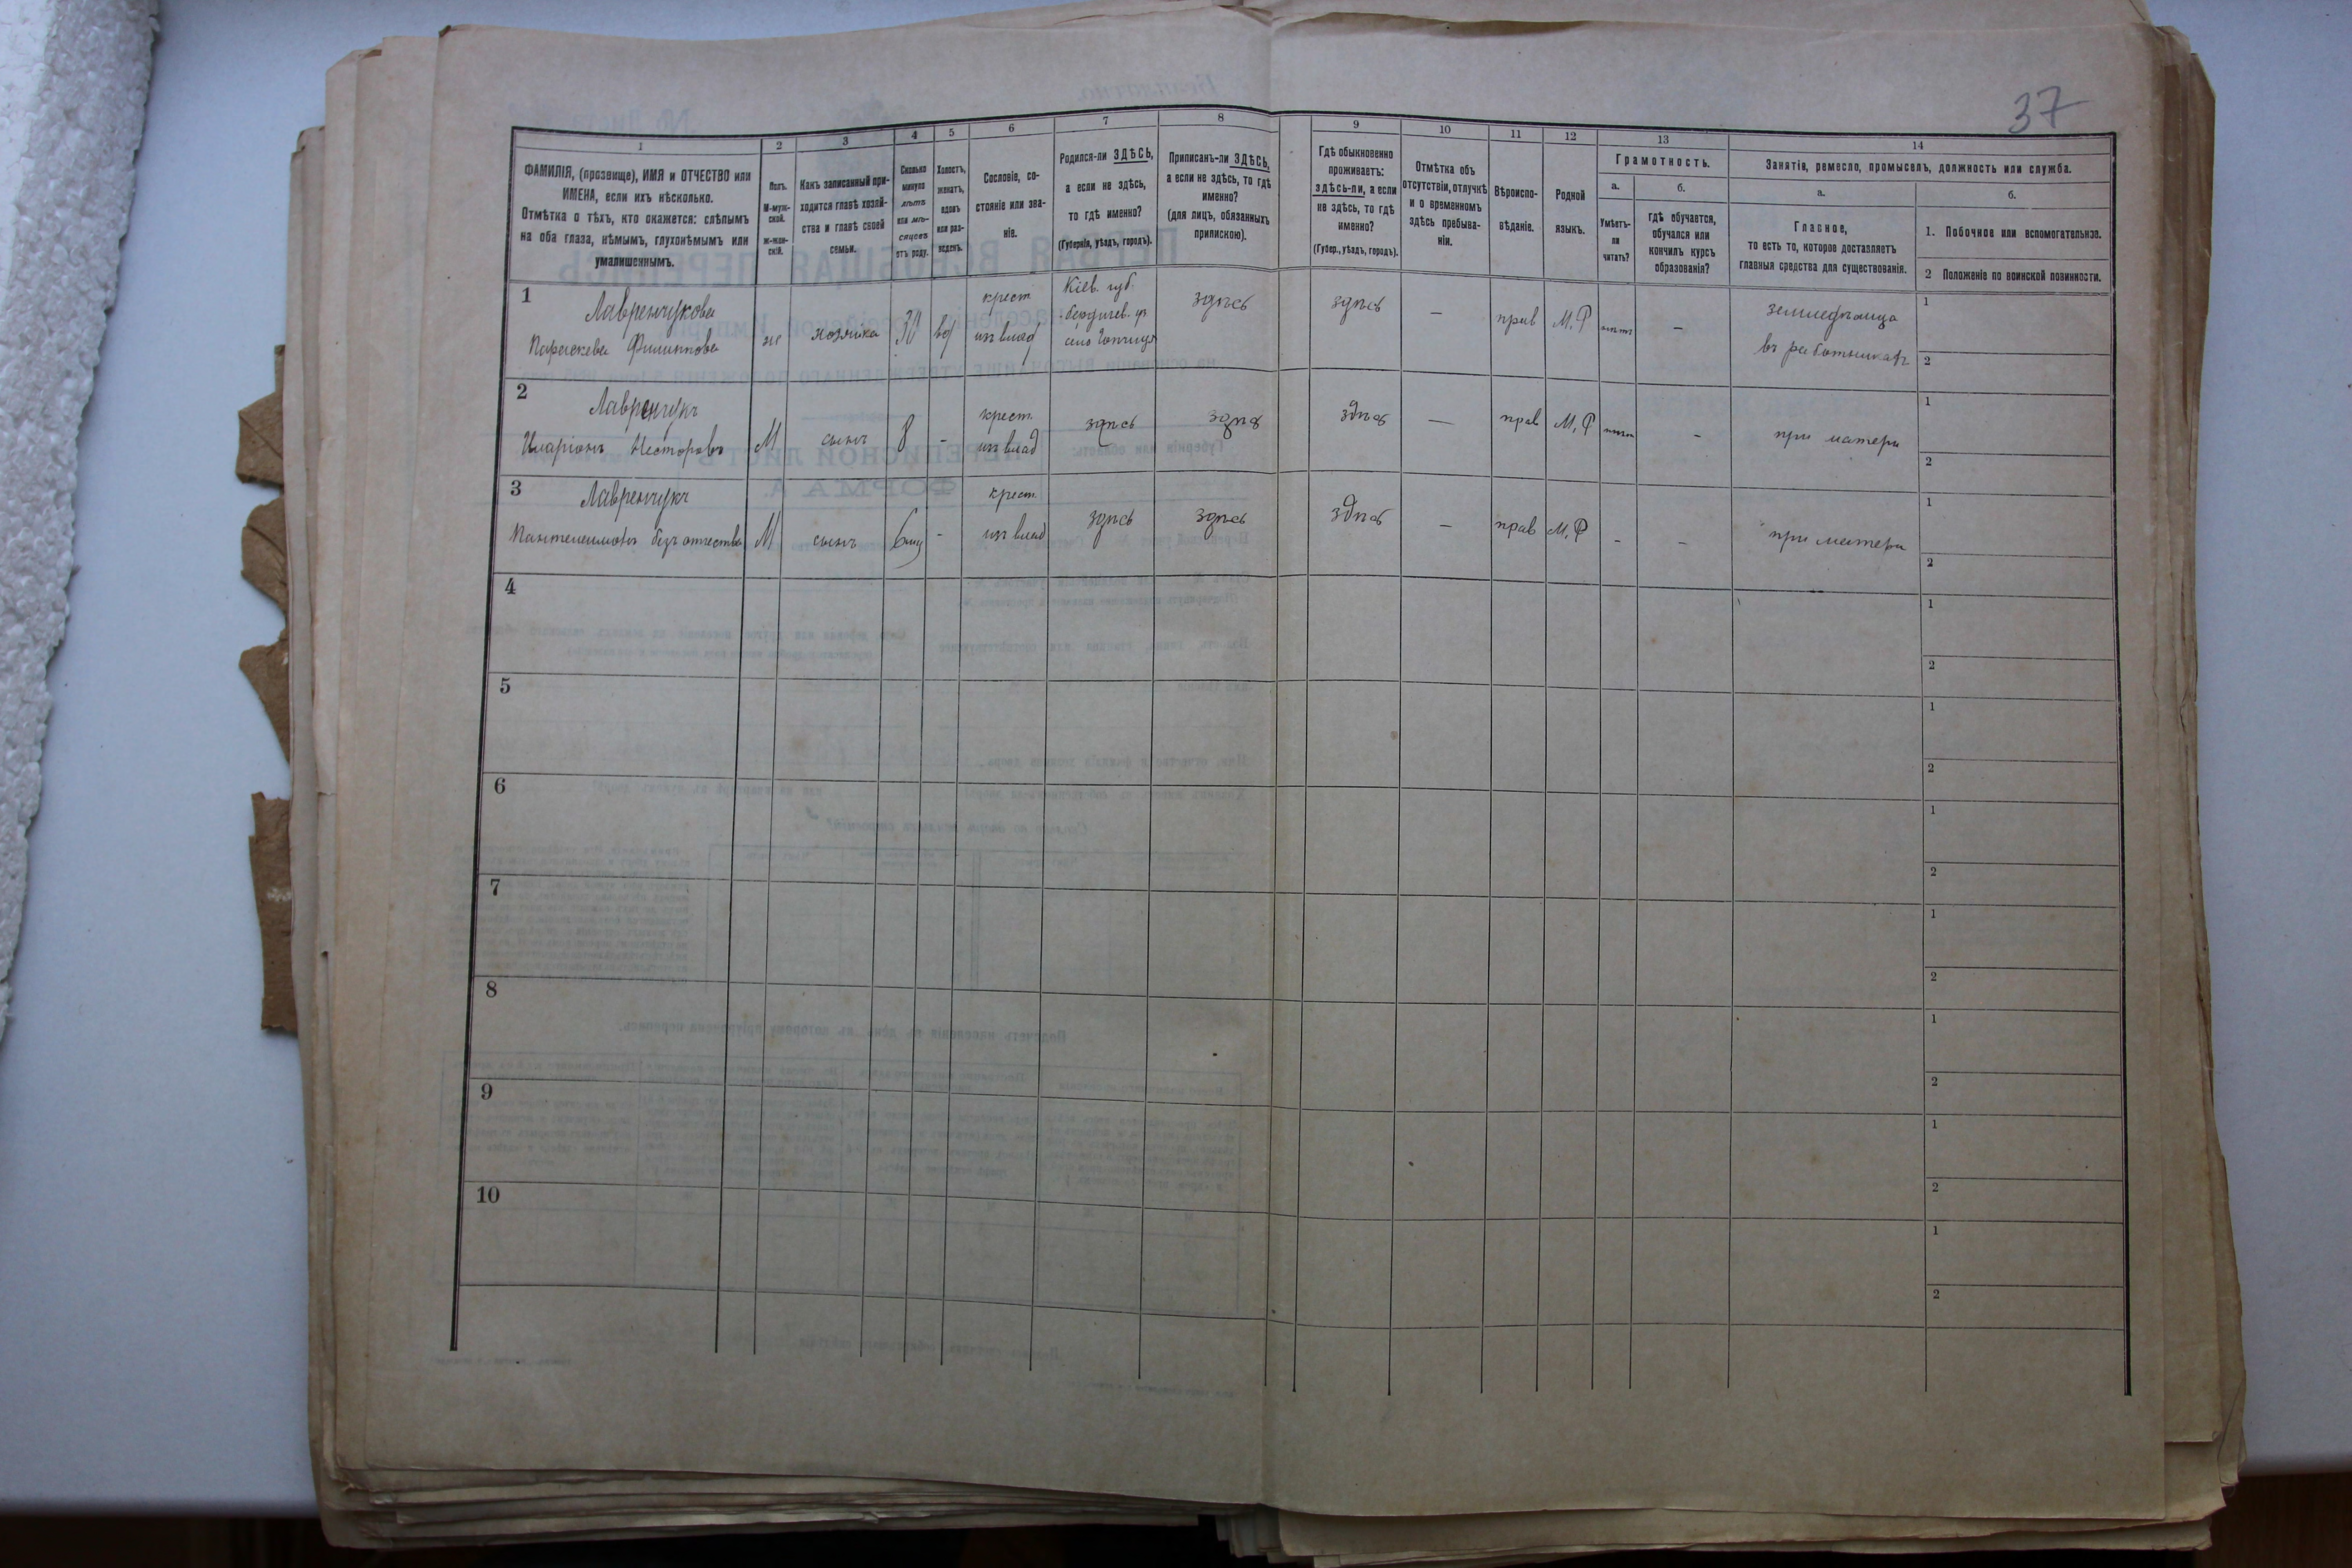 37
1
2
3
4
5
6
7
8
9
10
11
12
13
14
ФАМИЛІЯ, (прозвище), ИМЯ и ОТЧЕСТВО или
ИМЕНА, если ихъ нѣсколько.
Отмѣтка о тѣхъ, кто окажется: слѣпымъ
на оба глаза, нѣмымъ, глухонѣмымъ или
умалишеннымъ.
Полъ.
М-муж-
ской.
ж-жен-
скій.
Какъ записанный при-
ходится главѣ хозяй-
ства и главѣ своей
семьи.
Сколько
минуло
лѣтъ
или мѣ-
сяцевъ
отъ роду.
Холостъ,
женатъ,
вдовъ
или раз-
веденъ.
Сословіе, со-
стояніе или зва-
ніе.
Родился-ли ЗДѢСЬ,
а если не здѣсь,
то гдѣ именно?
(Губернія, уѣздъ, городъ).
Приписанъ-ли ЗДѢСЬ,
а если не здѣсь, то гдѣ
именно?
(для лицъ, обязанныхъ
припискою).
Гдѣ обыкновенно
проживаетъ:
здѣсь-ли, а если
не здѣсь, то гдѣ
именно?
(Губер., уѣздъ, городъ).
Отмѣтка объ
отсутствіи, отлучкѣ
и о временномъ
здѣсь пребыва-
ніи.
Вѣроиспо-
вѣданіе.
Родной
языкъ.
Грамотность.
а.
Умѣетъ-
ли
читать?
б.
гдѣ обучается,
обучался или
кончилъ курсъ
образованія?
Занятіе, ремесло, промыселъ, должность или служба.
а.
Главное,
то есть то, которое доставляетъ
главныя средства для существованія.
б.
1. Побочное или вспомогательное.
2 Положеніе по воинской повинности.
1
Лавренчукова
Параскева Филиппова
ж
хозяйка
30
вд
крест
изъ влад
Кіев. губ.
бердичев. уѣ
село
здѣсь
здѣсь
—
прав
М.Р
нѣтъ
–
въ работникахъ
1
2
2
Лавренчукъ
Иларіонъ Несторовъ
М
сынъ
8
-
крест.
изъ влад
здѣсь
здѣсь
здѣсь
—
прав
М.Р
нѣтъ
-
при матери
1
2
3
Лавренчукъ
Пантелеимонъ безъ отчества
М
сынъ
6 мѣц
-
крест.
изъ влад
здѣсь
здѣсь
здѣсь
–
прав
М.Р
-
–
при матери
1
2
4
1
2
5
1
2
6
1
2
7
1
2
8
1
2
9
1
2
10
1
2